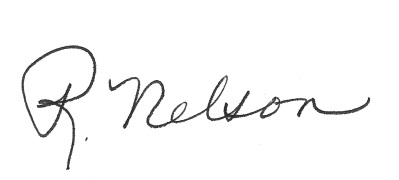 R. Nelson